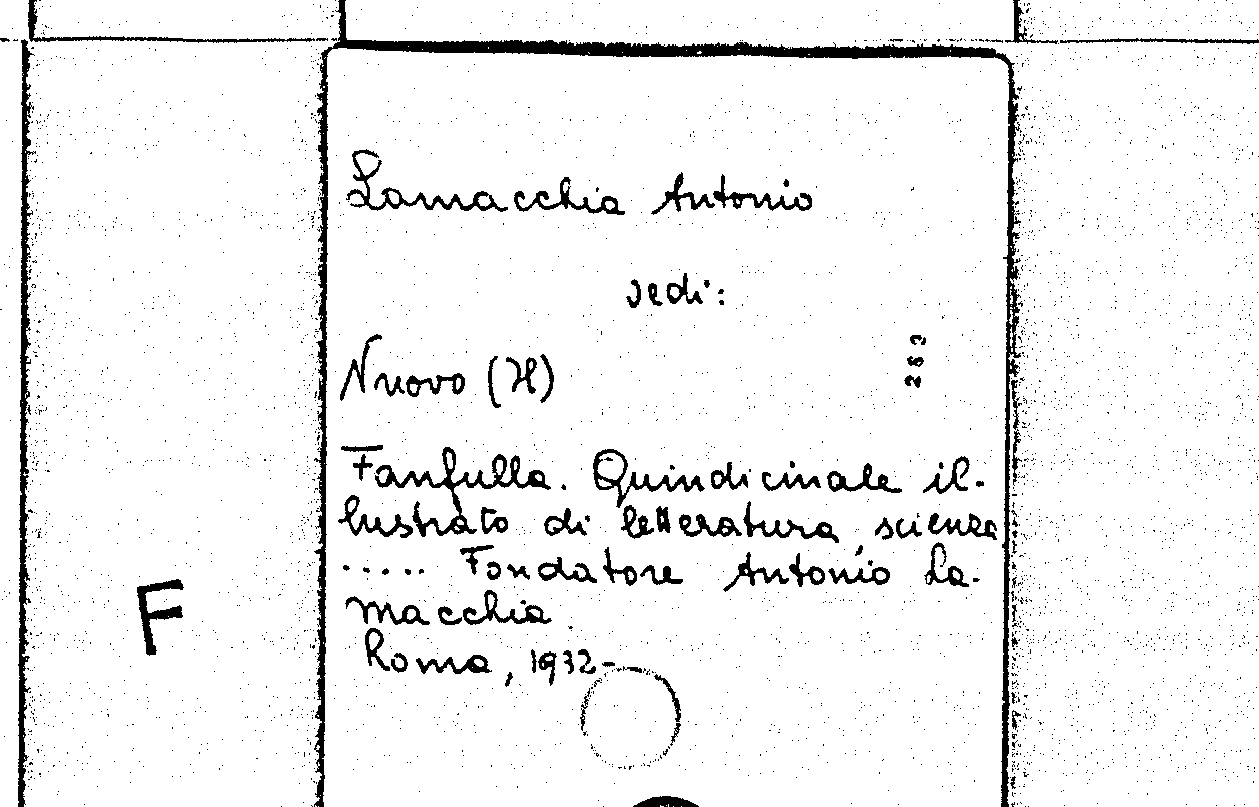 Lamacchia Antonio
vedi:
Nuovo (Il)
Fanfulla. Quindicinale il-
lustrato di letteratura, scienze
..... Fondatore Antonio La-
macchia.
Roma, 1932-
F